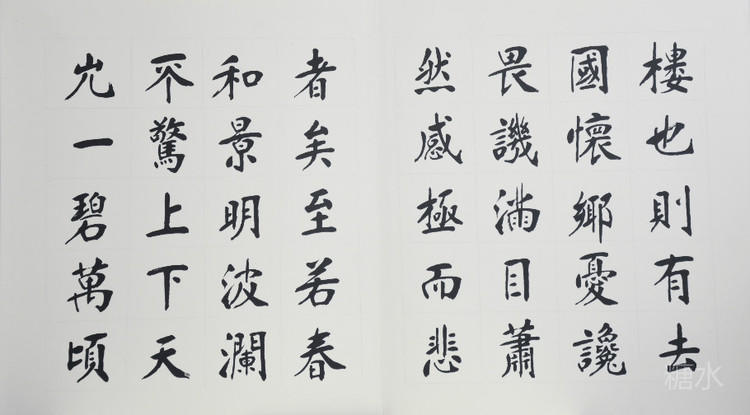 樓也則有去
國懷鄉憂讒
畏譏滿目蕭
然感極而悲
者矣至若春
和景明波瀾
不驚上下天
光一碧萬頃
糖水